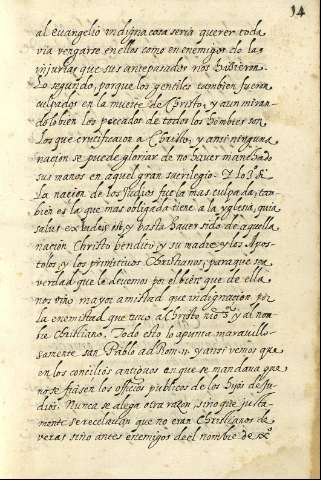 14
al evangelio indigna cosa seria querer toda
via vengarse en ellos como en enemigos de las
injurias que sus antepasados nos hisieron.
Lo segundo, porque los gentiles tambien fueron
culpados en la muerte de Christo, y aun miran-
dolo bien los pecados de todos los hombres son
los que crucificaron a Christo, y ansi ninguna
nacion se puede gloriar de no haver manchado
sus manos en aquel gran sacrilegio. Y lo 3.
La nacion de los Judios fue la mas culpada, tam-
bien es la que mas obligada tiene a la yglesia, quia
salus ex Iudeis est, y basta haver sido de aquella
nación Christo bendito, y su madre, y los Apos-
toles, y los primitivos Christianos, para que sea
verdad que le devemos por el bien que de ella
nos vino mayor amistad que indignacion por
la enemistad que tuvo a Christo nro Sr. y al nom-
bre Christiano. Todo esto lo apunta maravillo-
samente san Pablo ad Rom. 11. y ansi vemos que
en los concilios antiguos en que se mandava que
no se fiasen los officios publicos de los hijos de Ju-
dios. Nunca se alega otra razon, sino que justa-
mente se recelavan que no eran Christianos de
veras sino antes enemigos del nombre de xpo